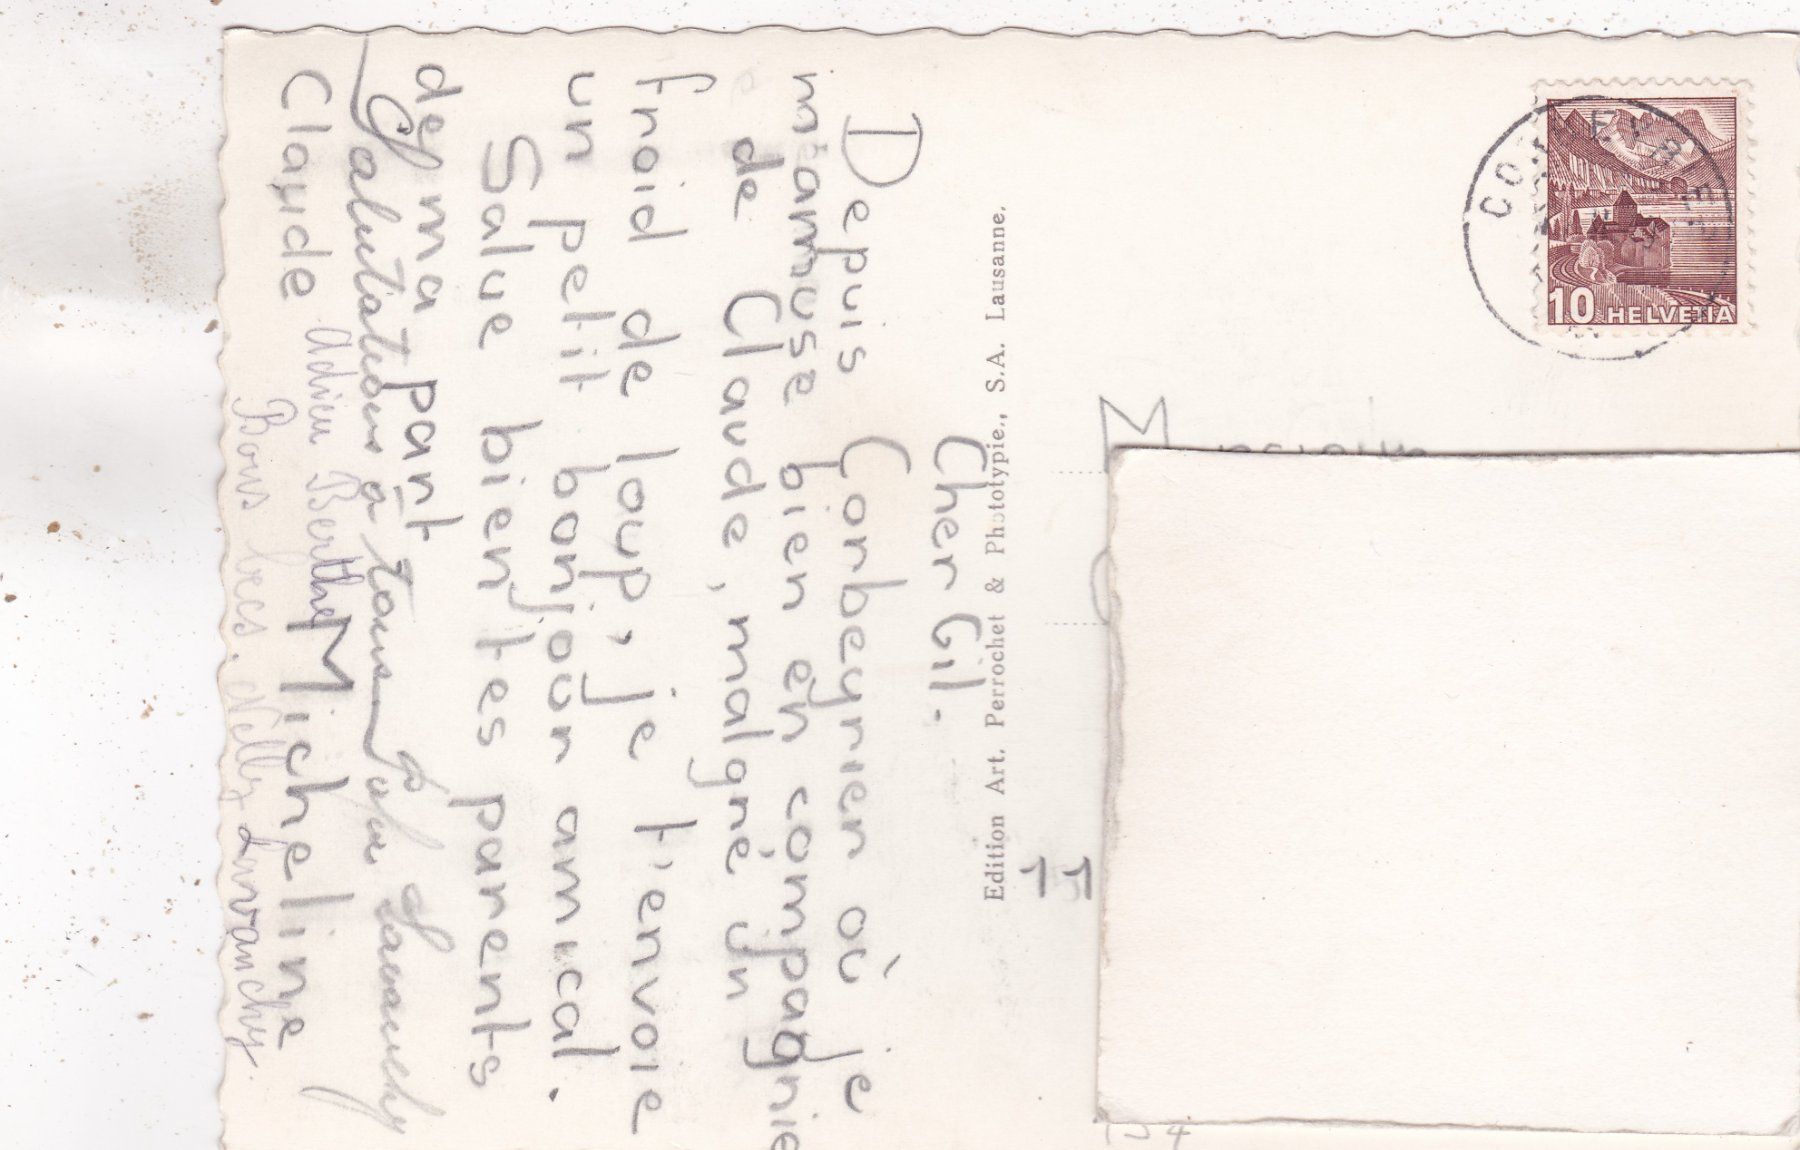 Cher Gil.
Depuis Corbeyrier où je
m'amuse bien en compagnie
de Claude, malgré un
froid de loup, je t'envoie
un petit bonjour amical.
Salue bien tes parents
de ma part
Micheline
Claude
Salutations à tous
Lavanchy
Adieu Berthe
Bons becs. Nelly Lavanchy.
Edition Art. Perrochet & Phototypie., S.A. Lausanne.
11
10 HELVETIA